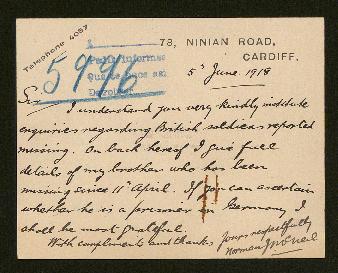 Telephone 4057
78, NINIAN ROAD,
CARDIFF.
5996
5th June 1918
Sir
I understand you very kindly institute
enquiries regarding British soldiers reported
missing. On back hereof I give full
details of my brother who has been
missing since 11th April. If you can ascertain
whether he is a prisoner in Germany I
shall be most grateful.
With compliments and thanks
Yours respectfully
Norman